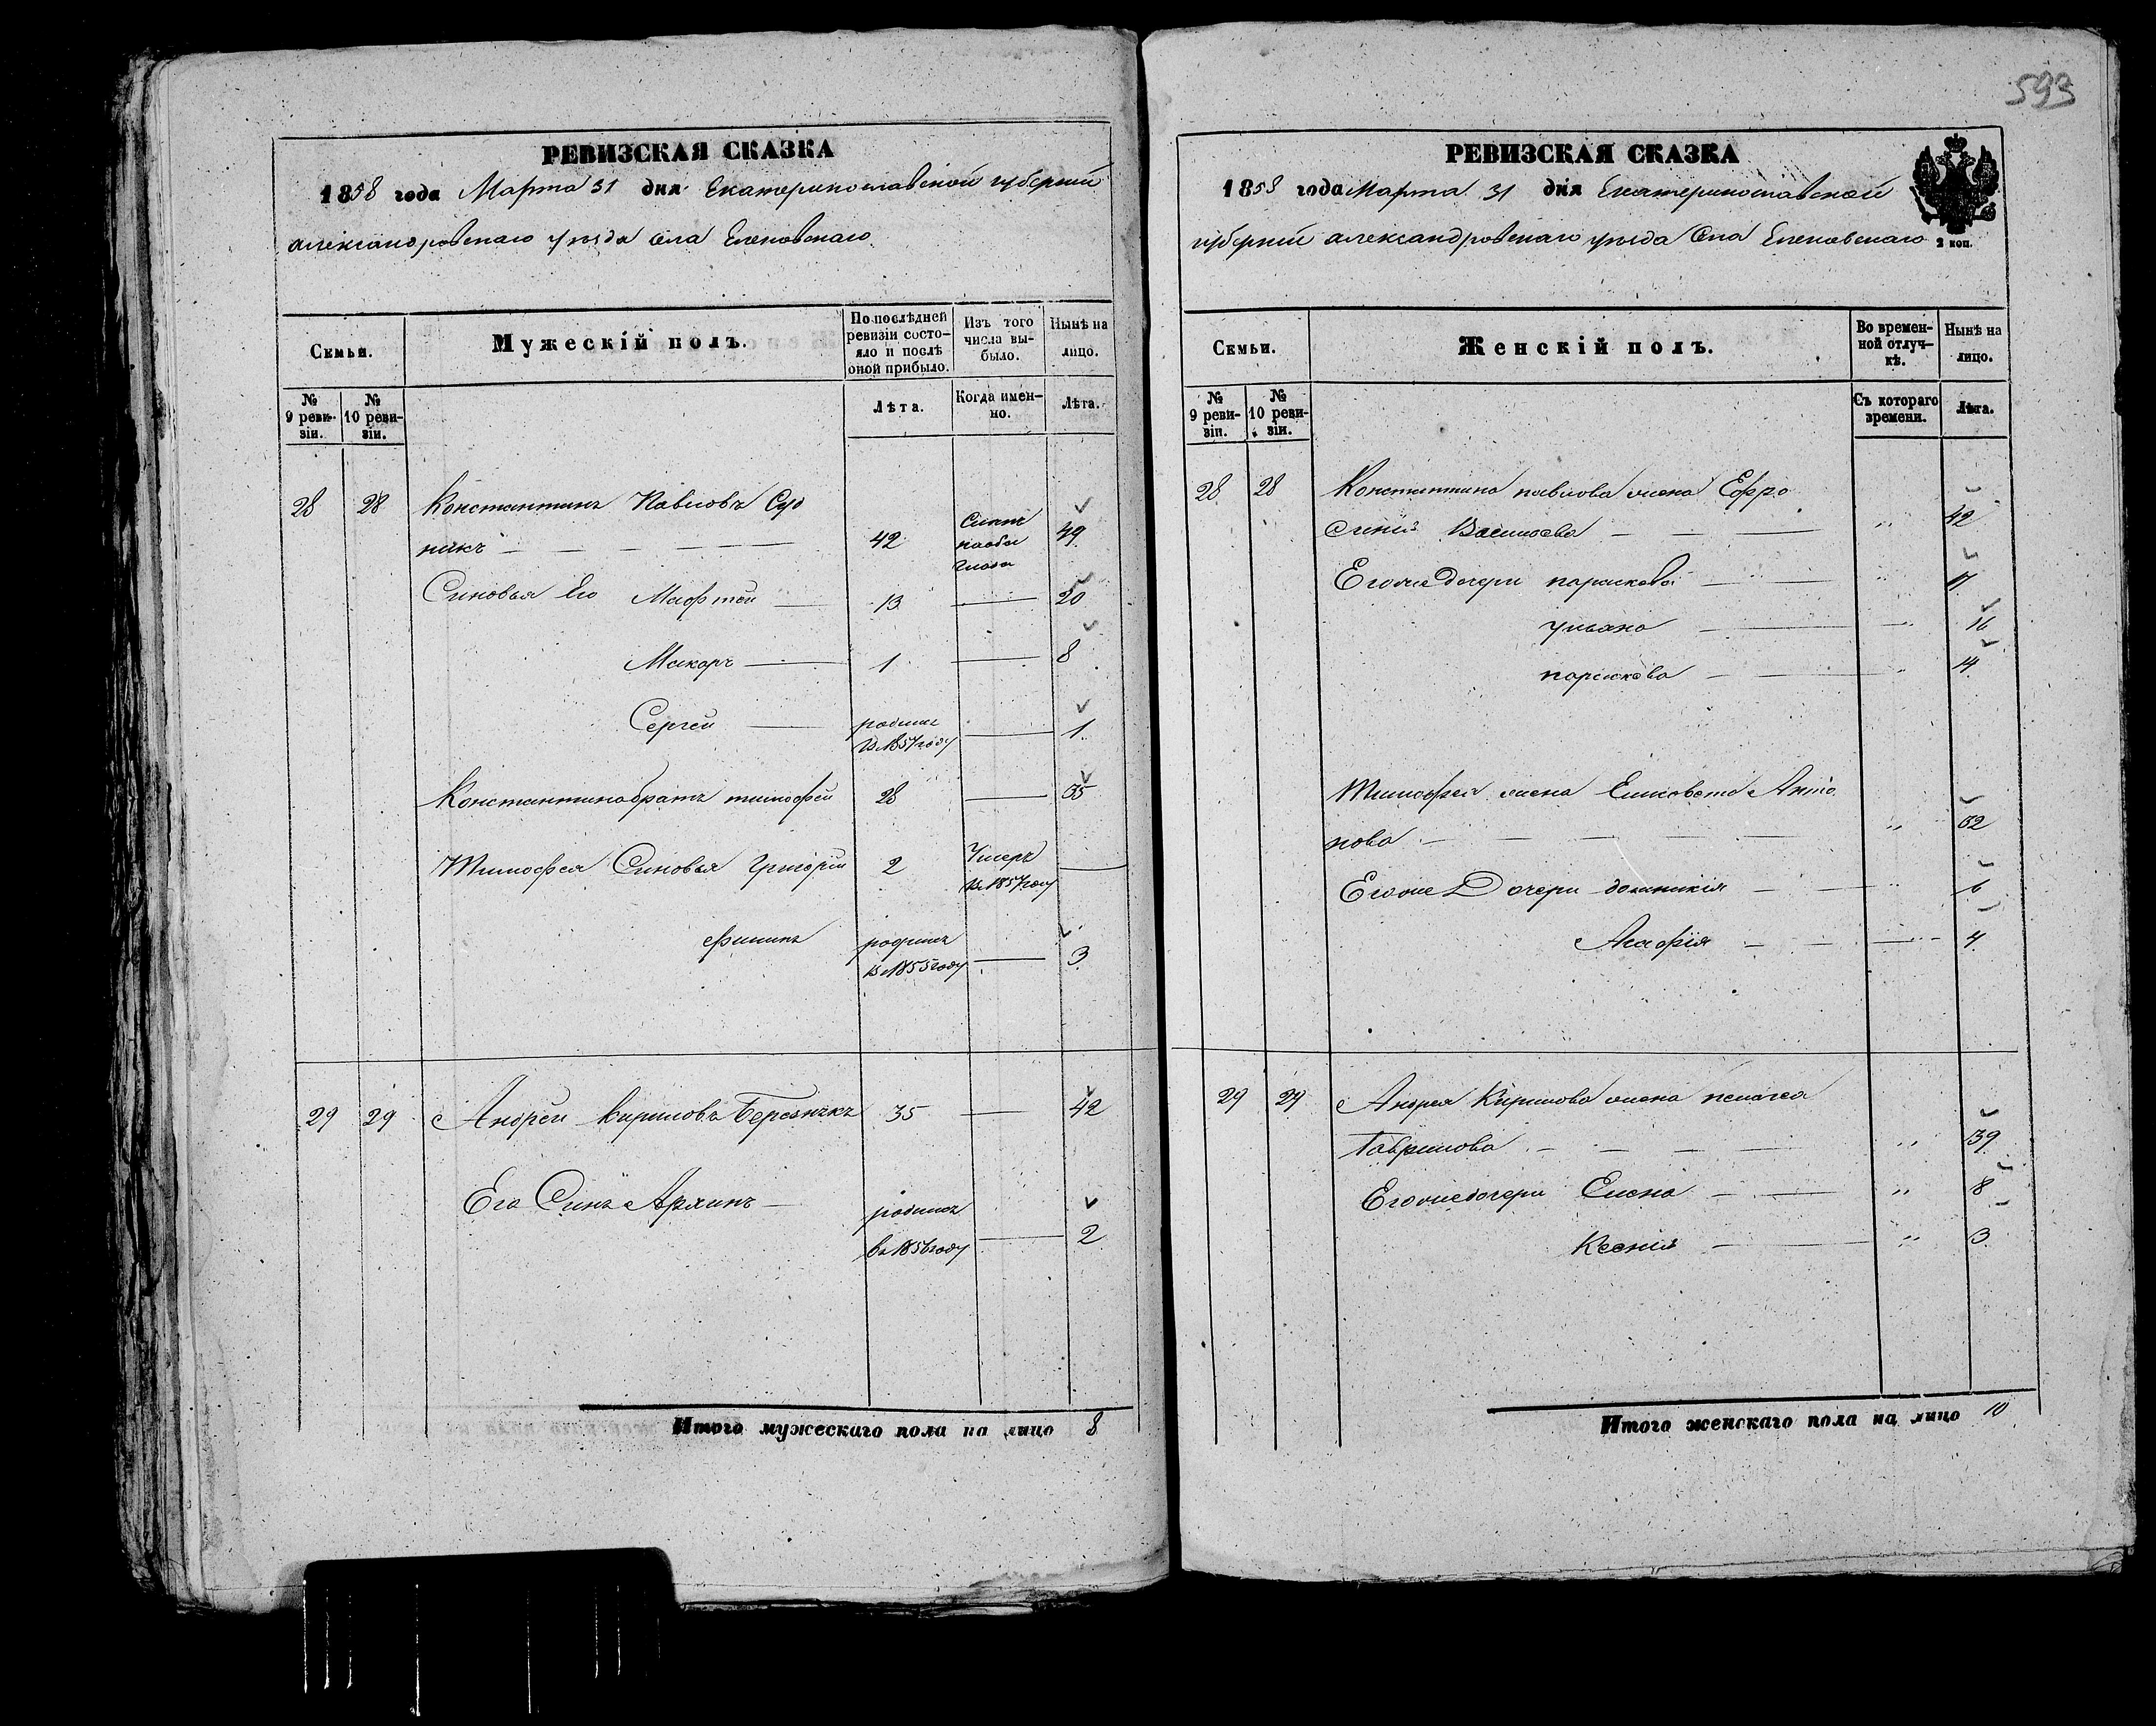 593
РЕВИЗСКАЯ СКАЗКА
1858 года Марта 31 дня Екатеринославской губерний
александровскаго уезда села Еленовскаго
Семьи.
Мужескій полъ.
По послѣдней ревизіи состо-яло и послѣ оной прибыло.
Изъ того числа вы-было.
Нынѣ на лицо.
№ 9 реви-зіи.
№ 10 реви-зіи.
Лѣта.
Когда имен-но.
Лѣта.
28 28 Константинъ Павловъ
никъ 42 49
Синовья Его 13 20
Макаръ 1 8
Сергей родился в 1857 году 1
Константина братъ тимофей 28 35
Тимофея Синовья григорий 2 Умеръ в 1857 году
филипъ родился в 1855 году 3
29 29 Андрей Кириловъ 35 42
Его Синъ родился в 1856 году 2
Итого мужескаго пола на лицо 8
РЕВИЗСКАЯ СКАЗКА
1858 года Марта 31 дня Екатеринославской
губерний александровскаго уезда Села Еленовскаго
2 коп.
Семьи.
Женскій полъ.
Во времен-ной отлуч-кѣ.
Нынѣ на лицо.
№ 9 реви-зіи.
№ 10 реви-зіи.
Съ котораго времени.
Лѣта.
28 28 Константина павлова жена Ефро
синия Василева " 42
Егоже Дочери параскева " 17
ульяна " 16
параскева " 14
Тимофея жена Елисавета Анто
нова " 32
Егоже Дочери домникия " 6
Агафия " 4
29 29 Андрея Кирилова жена пелагея
Гаврилова " 39
Егоже дочери Елена " 8
Ксения " 3
Итого женскаго пола на лицо 10